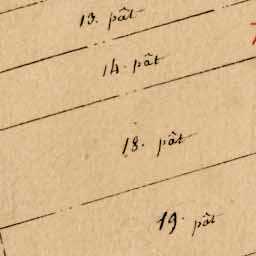 13. pât
14. pât
18. pât
19. pât